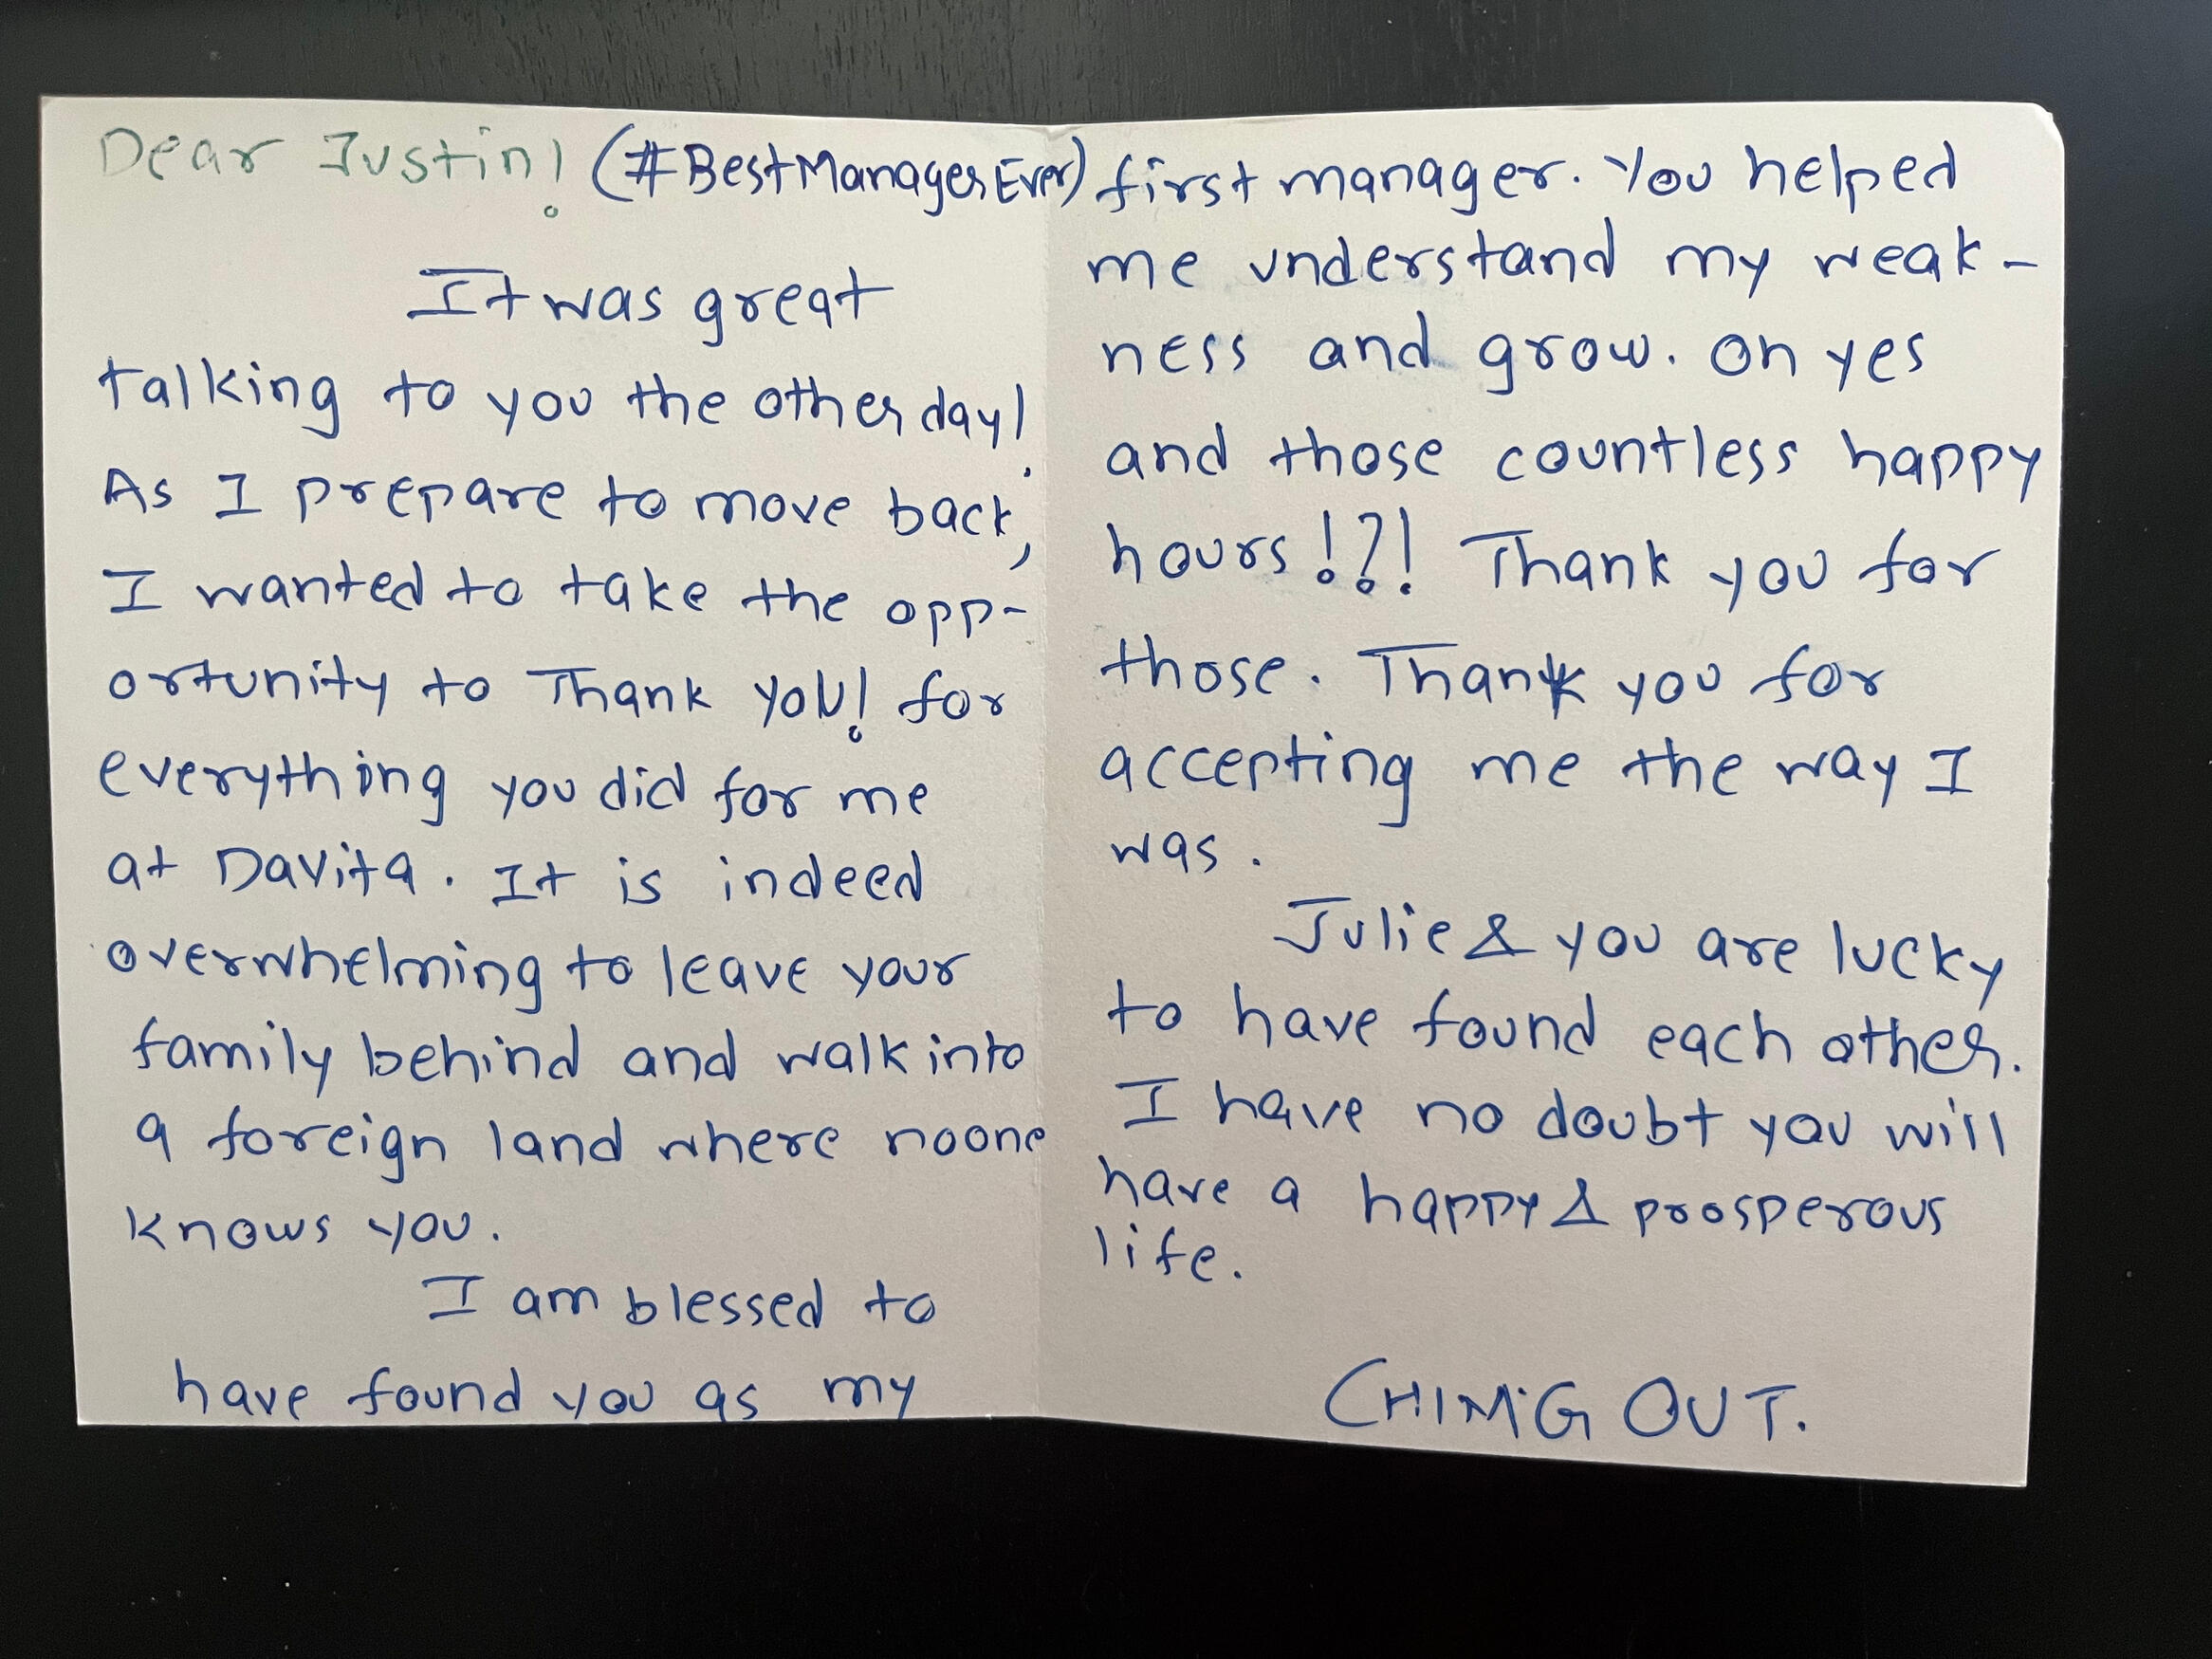 Dear Justin! (#BestManagerEver)
It was great
talking to you the other day!
As I prepare to move back,
I wanted to take the opp-
ortunity to Thank YOU! for
everything you did for me
at Davita. It is indeed
overwhelming to leave your
family behind and walk into
a foreign land where noone
knows you.
I am blessed to
have found you as my
first manager. You helped
me understand my weak-
ness and grow. Oh yes
and those countless happy
hours!?! Thank you for
those. Thank you for
accepting me the way I
was.
Julie & you are lucky
to have found each other.
I have no doubt you will
have a happy & prosperous
life.
OUT.